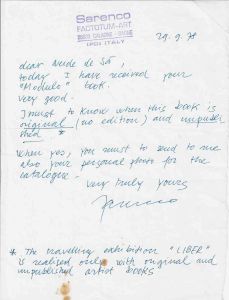 Sarenco
FACTOTUM-ART
ITALY
29.9.78
dear Neide de Sá,
today I have received your
"Module" book.
very good.
I must to know when this book is
original (no edition) and unpubli
shed *
When yes, you must to send to me
also your personal photo for the
catalogue.
very truly yours
Sarenco
* The travelling exhibition "LIBER"
is realised only with original and
unpublished artist books